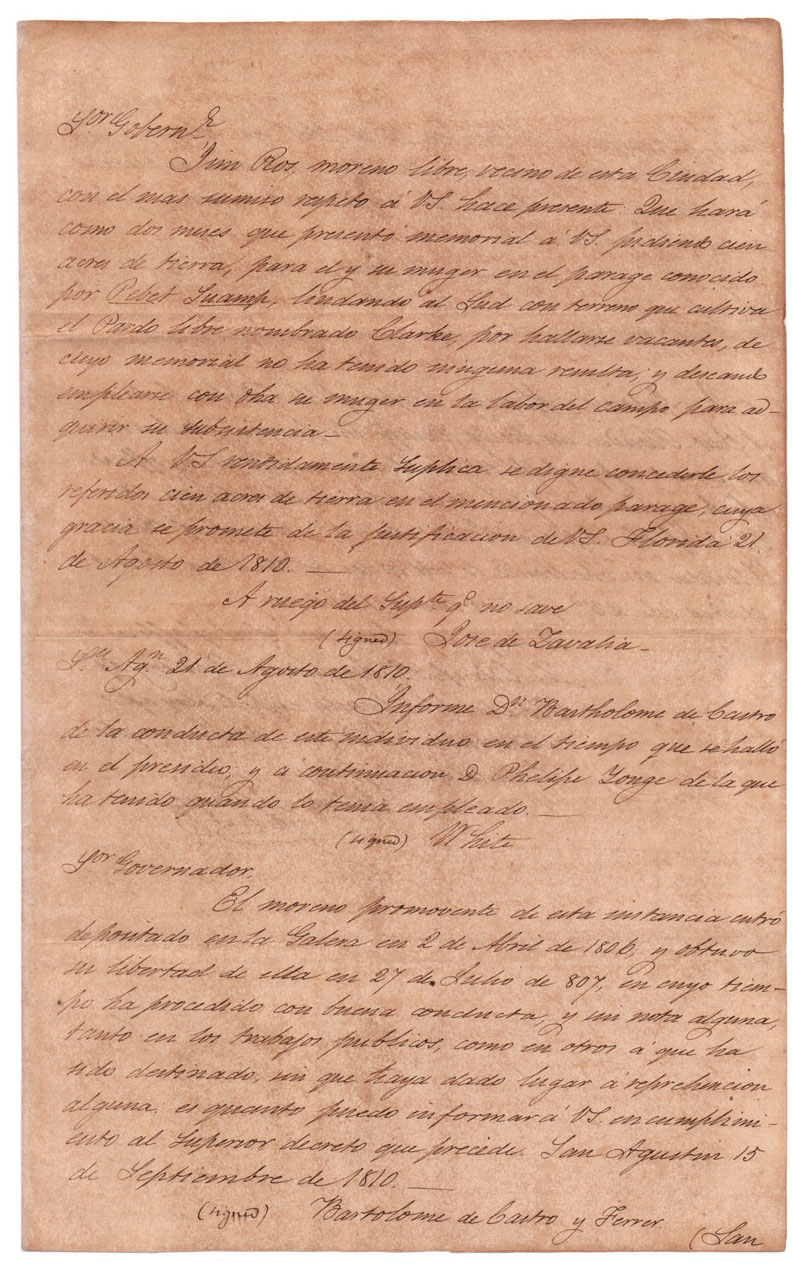 Sor Gobernr
Jim Ros, moreno libre, vecino de esta Ciudad,
con el mas sumiso respeto á VS. hace presente: Que hará
como dos meses que presentó memorial á VS. pidiendo cien
acres de tierra, para el y su muger en el parage conocido
por Pebet Suamp, lindando al Sud con terreno que cultiva
el Pardo libre nombrado Clarke, por hallarse vacantes, de
cuyo memorial no ha tenido ninguna resulta, y deseando
emplearse con dha su muger en la labor del campo para ad-
quirir su subsistencia—
A VS. rentidamente Suplica se digne concederle los
referidos cien acres de tierra en el mencionado parage, cuya
gracia se promete de la justificacion de VS. Florida 21
de Agosto de 1810. —
A ruego del Supte qe no save
(signed) Jose de Zavalia—
Sn Agn 21 de Agosto de 1810.
Informe Dn Bartholome de Castro
de la conducta de este individuo en el tiempo que se halló
en el presidio; y a continuacion D Phelipe Yonge de la que
ha tenido quando lo tenia empleado. —
(signed) White
Sor Governador.
El moreno promovente de esta instancia entró
depositado en la Galera en 2 de Abril de 1806, y obtuvo
su libertad de ella en 27 de Julio de 807, en cuyo tiem-
po ha procedido con buena conducta, y sin nota alguna,
tanto en los trabajos publicos, como en otros á que ha
sido destinado, sin que haya dado lugar á reprehencion
alguna: es quanto puedo informar á VS. en cumplimi-
ento al Superior decreto que precede. San Agustin 15
de Septiembre de 1810. —
(signed) Bartolome de Castro y Ferrer
(San